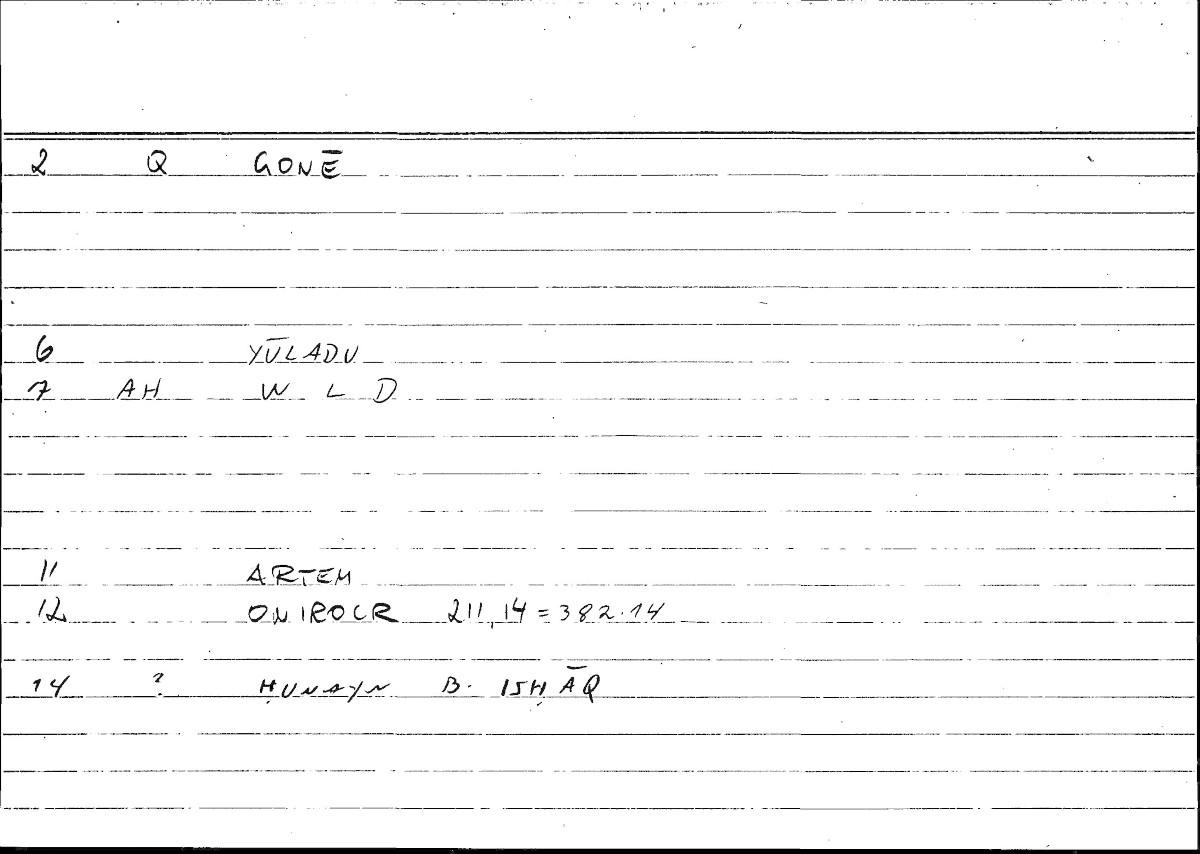 2 Q GONĒ
6 YŪLADU
7 AH W L D
11 ARTEM
12 ONIROCR 211,14 = 382.14
14 ? ḤUNAYN B. ISḤĀQ